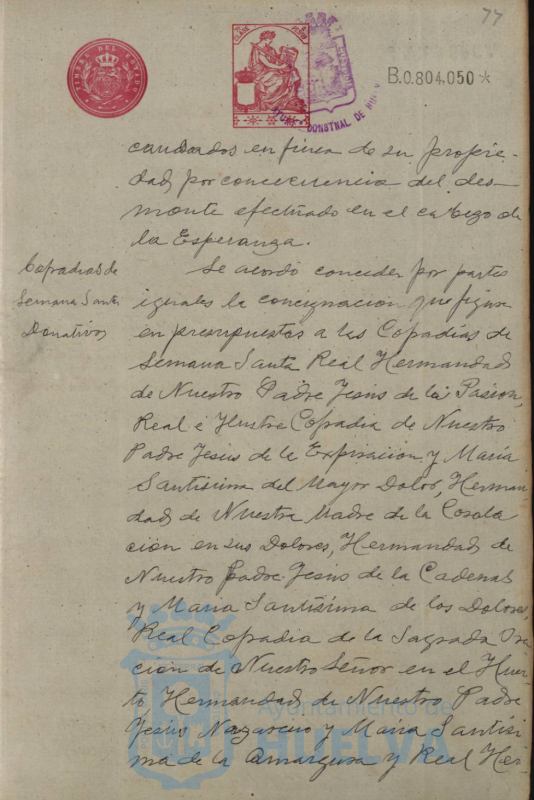 77
TIMBRE DEL ESTADO
B.0.804.050*
CONSTNAL DE
causados en finca de su propie-
dad por concecuencia del des-
monte efectuado en el cabezo de
la Esperanza.
Cofradias de
Semana Santa
Donativos
Se acordó conceder por partes
iguales la concignación que figura
en presupuestos a las Cofradías de
Semana Santa Real Hermandad
de Nuestro Padre Jesús de la Pasion,
Real é Ilustre Cofradia de Nuestro
Padre Jesus de la Expiracion y Maria
Santisima del Mayor Dolor, Herman
dad de Nuestra Madre de la Cosola
cion en sus Dolores, Hermandad de
Nuestro Padre Jesus de la Cadenas
y Maria Santísima de los Dolores,
Real Cofradia de la Sagrada Ora
ción de Nuestro Señor en el Huer-
to, Hermandad de Nuestro Padre
Jesús Nazareno y Maria Santísi
ma de la Amargura y Real Her-
Ayuntamiento de
HUELVA